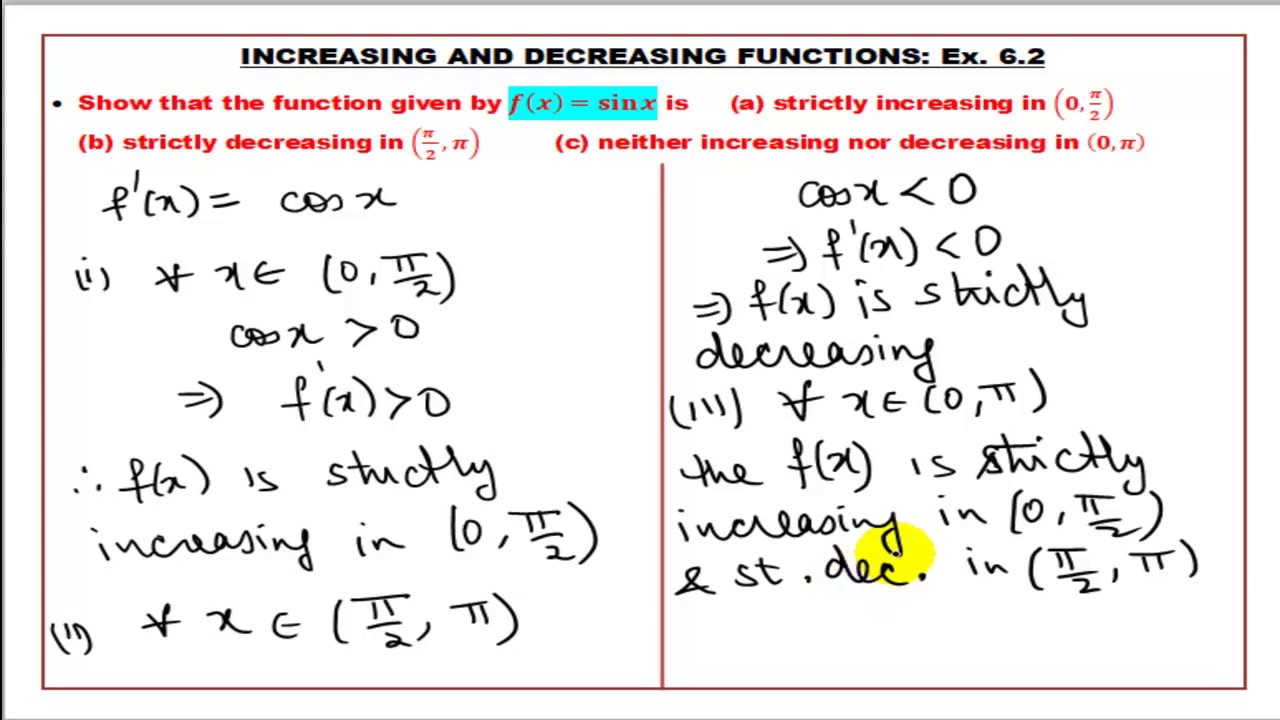 INCREASING AND DECREASING FUNCTIONS: Ex. 6.2
• Show that the function given by f(x) = sin x is (a) strictly increasing in (0, π/2)
(b) strictly decreasing in (π/2, π) (c) neither increasing nor decreasing in (0, π)
f'(x) = cos x
(i) ∀ x ∈ (0, π/2)
cos x > 0
⇒ f'(x) > 0
∴ f(x) is strictly
increasing in (0, π/2)
(ii) ∀ x ∈ (π/2, π)
cos x < 0
⇒ f'(x) < 0
⇒ f(x) is strictly
decreasing
(iii) ∀ x ∈ (0, π)
the f(x) is strictly
increasing in (0, π/2)
& st. dec. in (π/2, π)